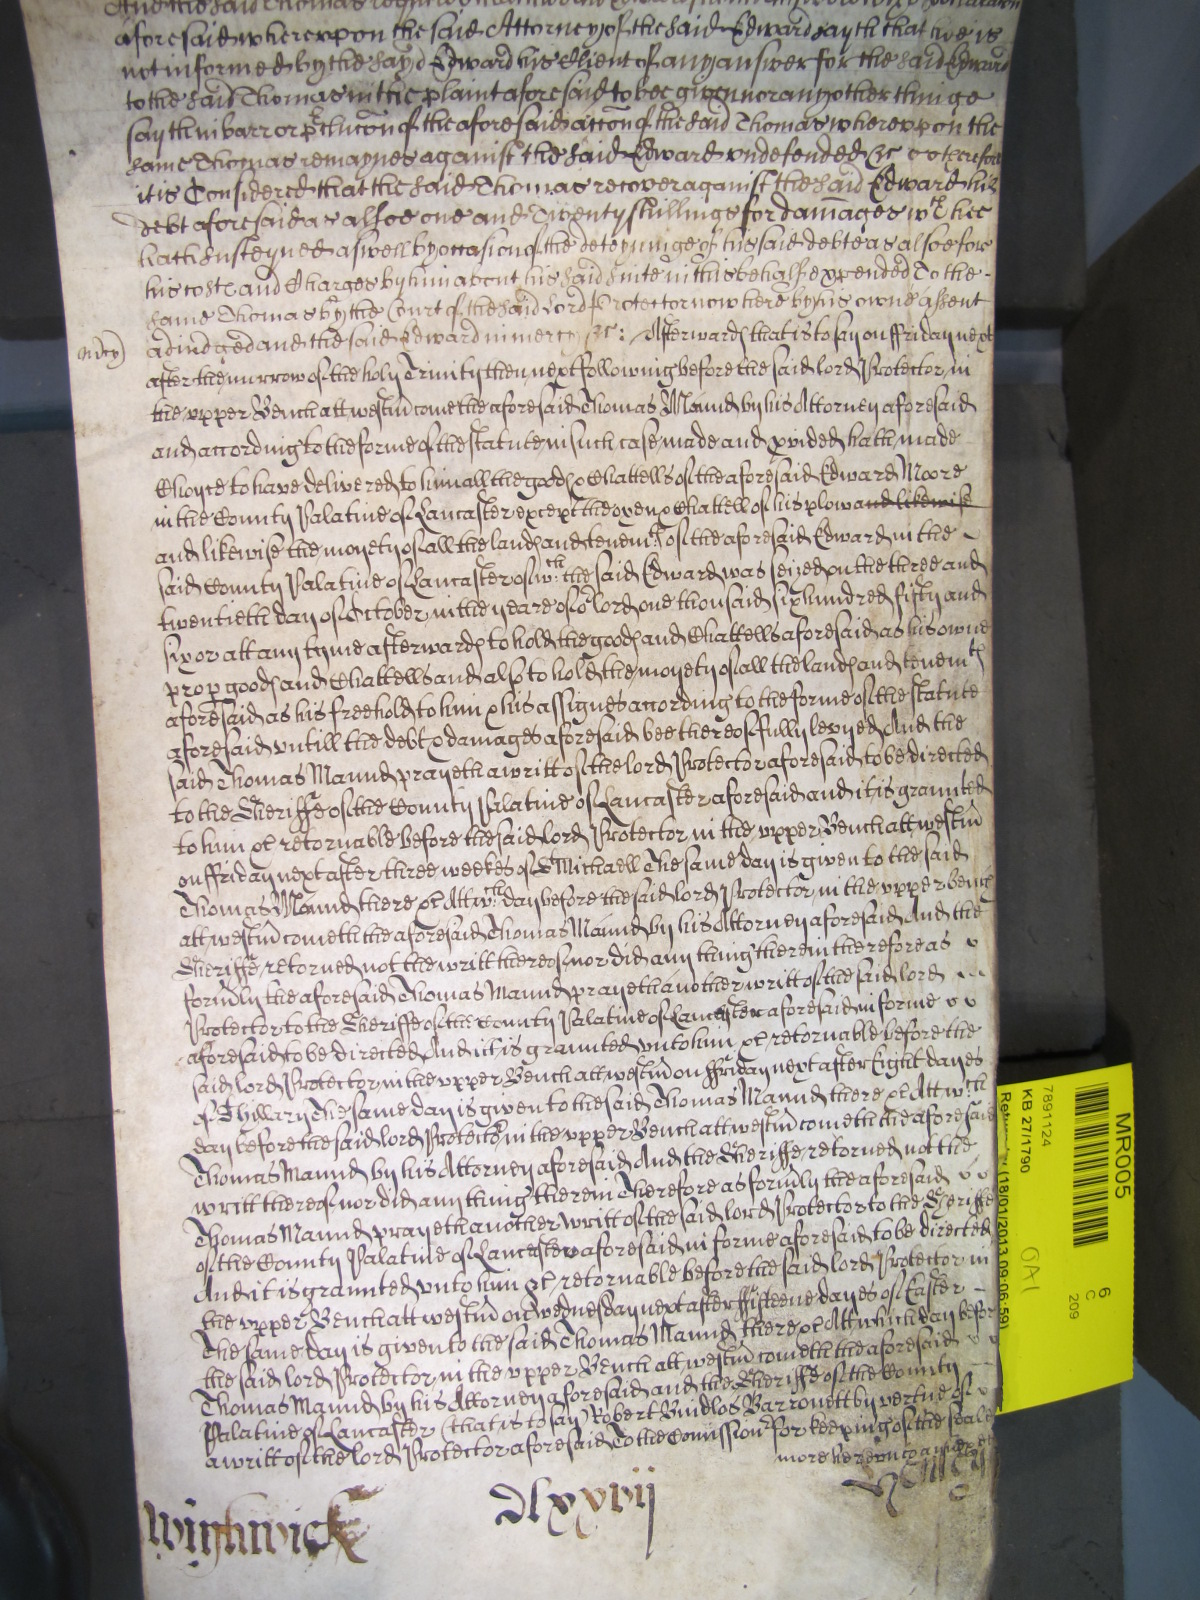 And the said Thomas
aforesaid whereupon the said Attorney of the said Edward sayth that hee is
not informed by the sayd Edward his Client of any answer for the said Edward
to the said Thomas in the plaint aforesaid to bee given nor any other thinge
sayth in barr or p'clucon of the aforesaid accon of the said Thomas whereupon the
same Thomas remaynes against the said Edward undefended &c Therefore
it is Considered that the said Thomas recover against the said Edward his
debt aforesaid as alsoe one and Twenty shillings for damages wch hee
hath susteyned aswell by occasion of the deteyninge of his said debt as alsoe for
his costs and Charges by him about his said suite in this behalfe expended To the
same Thomas by the Court of the said Lord Protector now here by his owne assent
adiudged and the said Edward in mercy &c: Afterwards that is to say on ffriday next
after the morrow of the holy Trinity then next following before the said lord Protector in
the upper Bench att westm come the aforesaid Thomas Maund by his Attorney aforesaid
and according to the forme of the statute in such case made and pvided hath made
Choyce to have delivered to him all the goods & Chattells of the aforesaid Edward Moore
in the County Palatine of Lancaster except the oxen & Chattell of his plow and likewise
and likewise the moyety of all the lands and tenemts of the aforesaid Edward in the
said County Palatine of Lancaster of wch the said Edward was seized on the three and
twentieth day of October in the yeare of or lord one thousand six hundred fifty and
six or att any tyme afterwards to hold the goods and Chattells aforesaid as his owne
prop goods and Chattells and also to hold the moyety of all the lands and tenemts
aforesaid as his freehold to him & his assignes according to the forme of the statute
aforesaid untill the debt & damages aforesaid bee thereof fully levyed And the
said Thomas Maund prayeth a writt of the lord Protector aforesaid to be directed
to the Sheriffe of the County Palatine of Lancaster aforesaid and it is graunted
to him &c retornable before the said lord Protector in the upper Bench att westm
on ffriday next after three weekes of St Michaell The same day is given to the said
Thomas Maund there &c Att wch day before the said lord Protector in the upper bench
att westm cometh the aforesaid Thomas Maund by his Attorney aforesaid And the
Sheriffe retorned not the writt thereof nor did any thing therein therefore as
formly the aforesaid Thomas Maund prayeth another writt of the said lord
Protector to the Sheriffe of the County Palatine of Lancaster aforesaid in forme
aforesaid to be directed And it is graunted unto him &c retornable before the
said lord Protector in the upper Bench att westm on ffriday next after Eight dayes
of St hillary The same day is given to the said Thomas Maund there &c Att wch
day before the said lord Protector in the upper Bench att westm cometh the aforesaid
Thomas Maund by his Attorney aforesaid And the Sheriffe retorned not the
writt thereof nor did any thing therein Therefore as formly the aforesaid
Thomas Maund prayeth another writt of the said lord Protector to the Sheriffe
of the County Palatine of Lancaster aforesaid in forme aforesaid to be directed
And it is graunted unto him &c retornable before the said lord Protector in
the upper Bench att westm on wednesday next after ffifteene dayes of Easter
The same day is given to the said Thomas Maund there &c Att which day before
the said lord Protector in the upper Bench att westm cometh the aforesaid
Thomas Maund by his Attorney aforesaid and the Sheriffe of the County
Palatine of Lancaster (that is to say) Robert Bindlos Barronett by vertue of
a writt of the lord Protector aforesaid To the Comissionrs for keeping of the seale
more
Wightwick
dlxxvij
MR005
7891124
KB 27/1790
(18/01/2013 09:06:59)
6
C
209